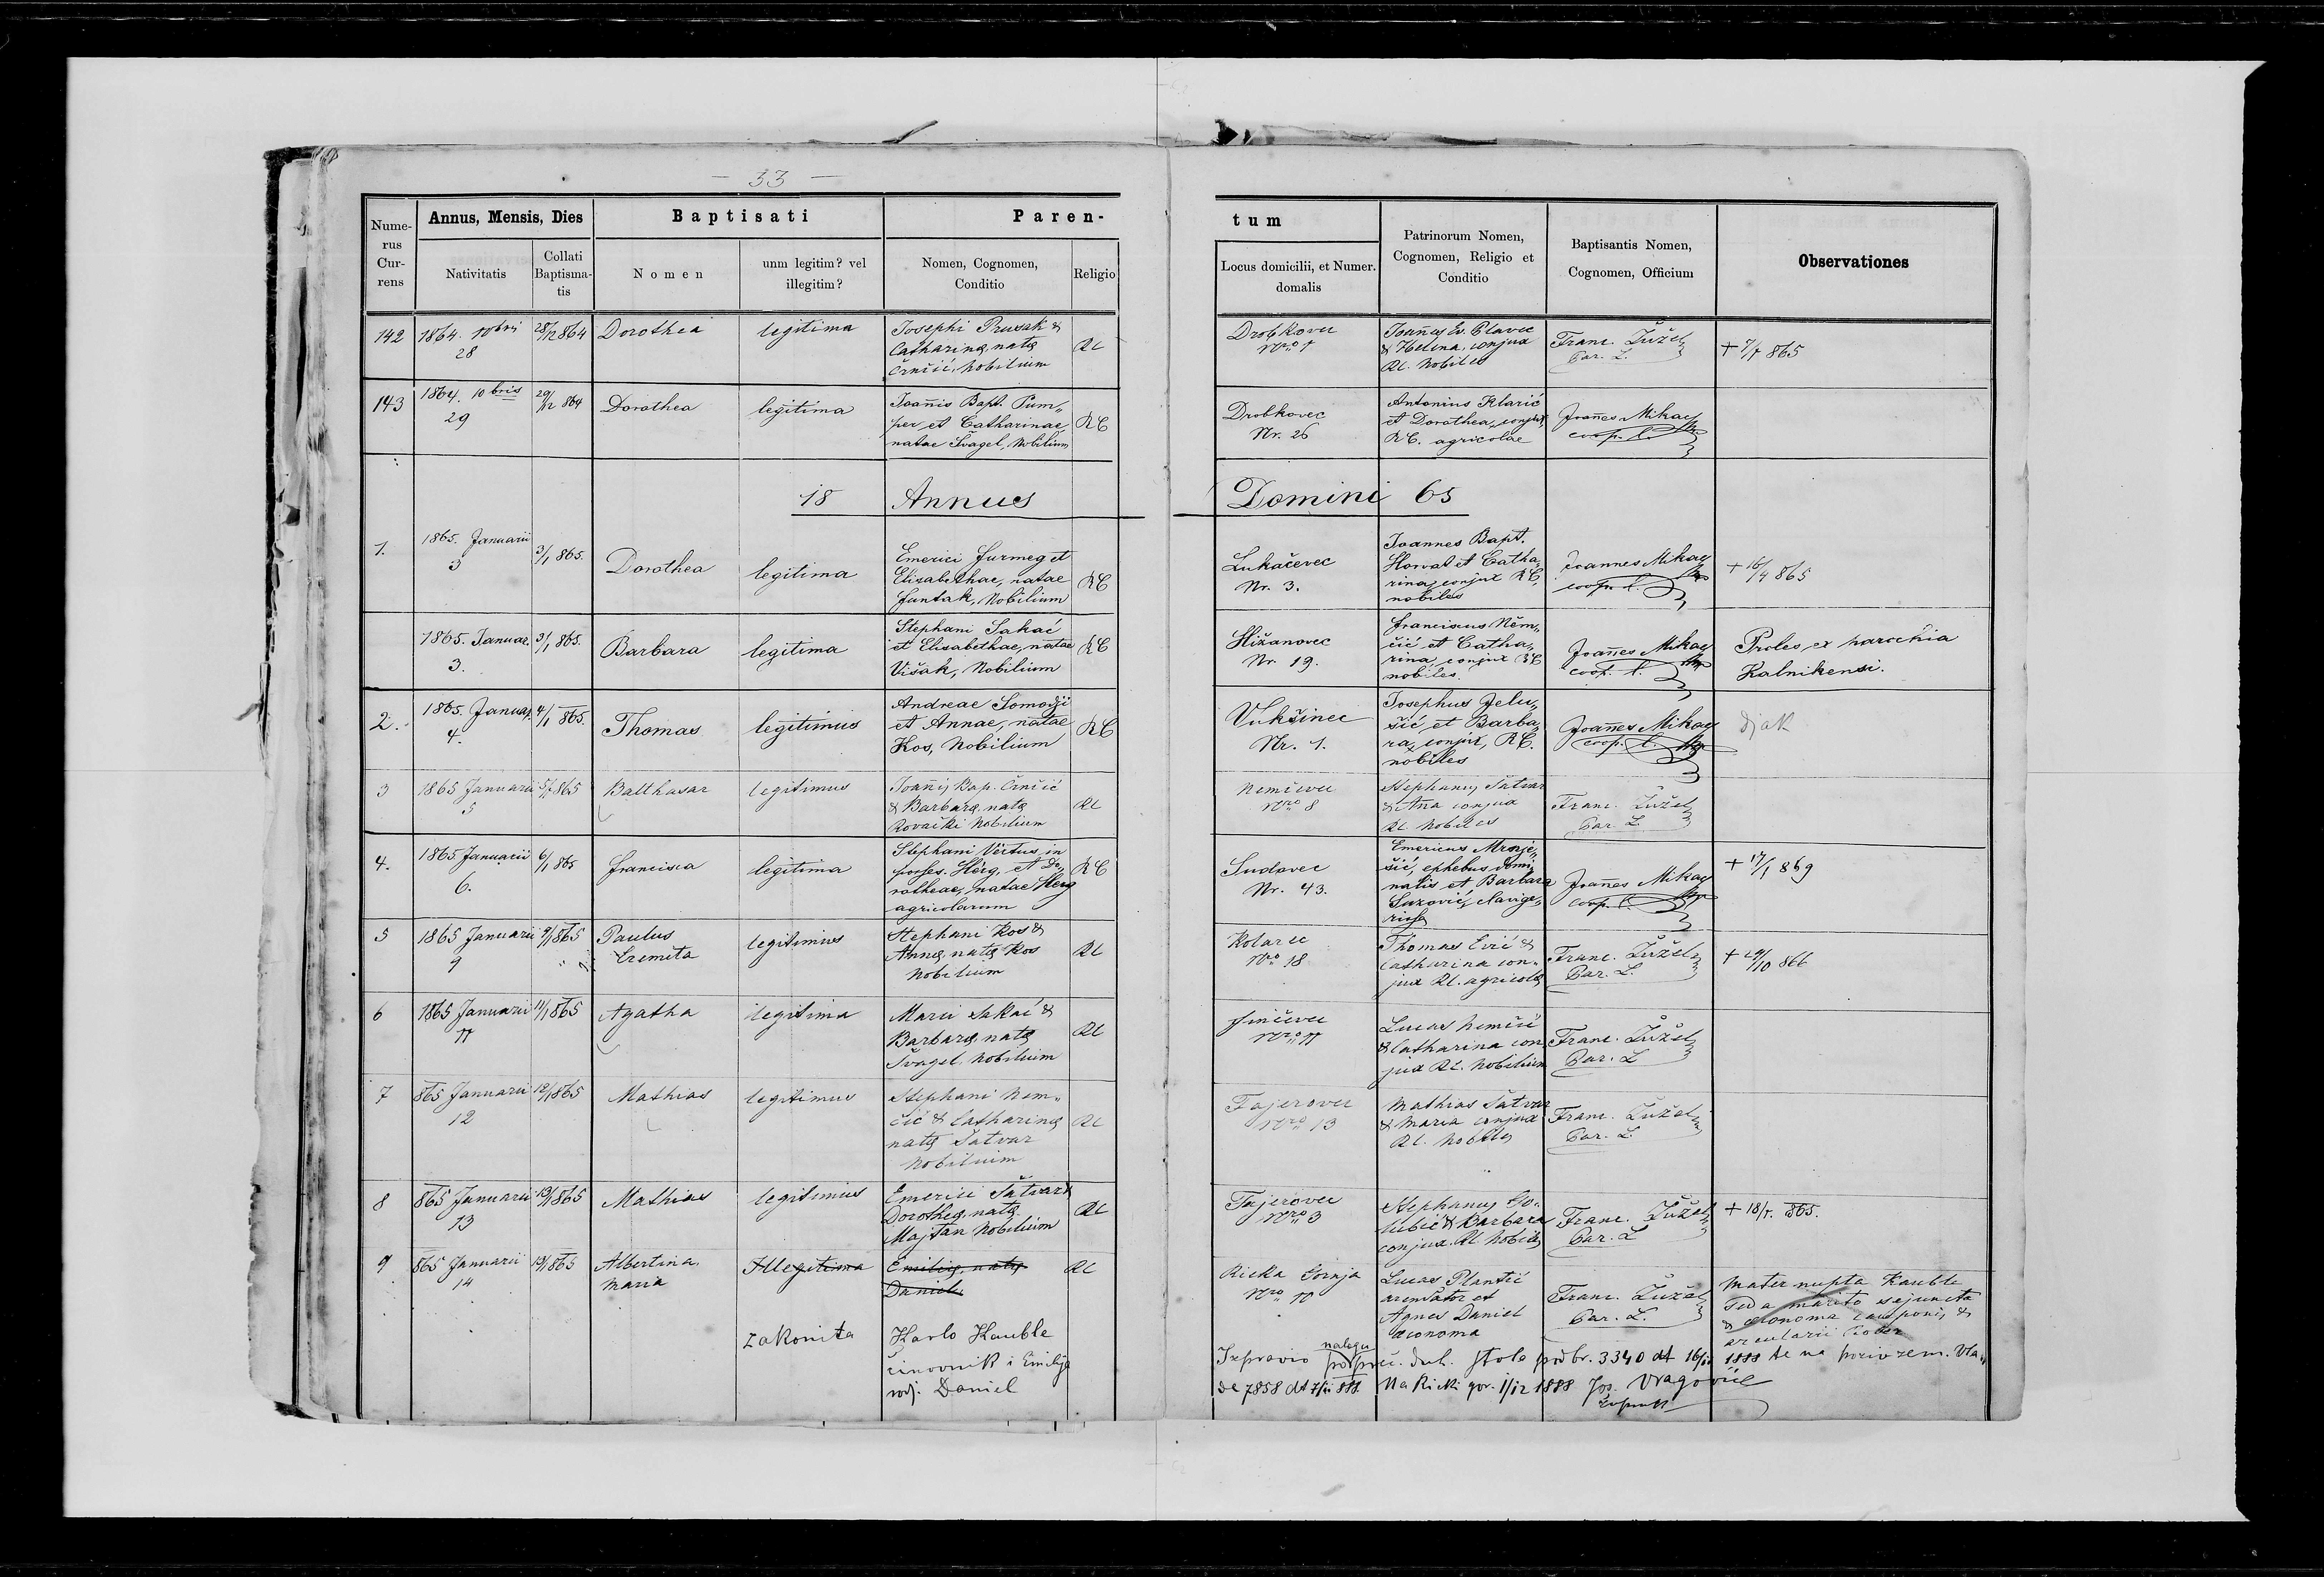 — 33 —
Nume-
rus
Cur-
rens
Annus, Mensis, Dies
Nativitatis
Collati
Baptisma-
tis
Baptisati
Nomen
unm legitim? vel
illegitim?
Paren-
Nomen, Cognomen,
Conditio
Religio
tum
Locus domicilii, et Numer.
domalis
Patrinorum Nomen,
Cognomen, Religio et
Conditio
Baptisantis Nomen,
Cognomen, Officium
Observationes
142
1864. 10bri
28
28/12 864
Dorothea
legitima
Josephi Prusak &
Catharinę, natę
Črnčić, Nobilium
RC
Drobkovec
Nro 1
Joañes Ev. Plavec
& Helena, conjux
RC. Nobiles
Franc. Žužel
Par. L.
+ 7/7 865
143
1864. 10bris
29
29/12 864
Dorothea
legitima
Joañis Bapt. Pum„
per et Catharinae,
natae Švagel, Nobilium
RC
Drobkovec
Nr. 26
Antonius Klarić
et Dorothea, conjux,
RC. agricolae
Joañes Mikac
coop. l.
18 Annus Domini 65
1.
1865. Januarii
3
3/1 865.
Dorothea
legitima
Emerici Furmeg et
Elisabethae, natae
Funtak, Nobilium
RC
Lukačevec
Nr. 3.
Joannes Bapt.
Horvat et Catha„
rina, conjux RC,
nobiles
Joannes Mikac
coop. l.
+ 16/4 865
1865. Januar.
3.
3/1 865.
Barbara
legitima
Stephani Sakač
et Elisabethae, natae
Višak, Nobilium
RC
Hižanovec
Nr. 19.
Franciscus Něm„
čić et Catha„
rina, conjux RC
nobiles.
Joañes Mikac
coop. l.
Proles ex parochia
Kalnikensi.
2.
1865. Januar.
4.
4/1 865.
Thomas
legitimus
Andreae Somogji
et Annae, natae
Kos, Nobilium
RC
Vukšinec
Nr. 1.
Josephus Jelu„
šić et Barba„
ra, conjux, RC.
nobiles
Joañes Mikac
coop. l.
Djak
3
1865 Januarii
5
5/1 865
Balthasar
legitimus
Joañis Bap. Črnčić
& Barbarę, natę
Kovački Nobilium
RC
Nemčevec
Nro 8
Stephanus Šatvar
& Ana conjux
RC Nobiles
Franc. Žužel
Par. L.
4.
1865 Januarii
6.
6/1 865
Francisca
legitima
Stephani Virtus, in
possess. Hěrg, et Do„
rotheae, natae Herg
agricolarum
RC
Sudovec
Nr. 43.
Emericus Mrnje„
šić, ephebus domi„
nalis et Barbara
Joañes Mikac
coop. l.
+ 17/1 869
5
1865 Januarii
9
9/1 865
Paulus
Eremita
legitimus
Stephani Kos &
Annę, natę Kos
Nobilium
RC
Kolarec
Nro 18
Thomas Ević &
Catharina con„
jux RC. agricolę
Franc. Žužel
Par. L.
+ 29/10 866
6
1865 Januarii
11
11/1 865
Agatha
legitima
Marci Sakač &
Barbarę, natę
Švagel, Nobilium
RC
Finčevec
Nro 11
Lucas Nemčić
& Catharina con
jux RC. Nobilium
Franc. Žužel
Par. L
7
865 Januarii
12
12/1 865
Mathias
legitimus
Stephani Nem„
čić & Catharinę
natę Šatvar
Nobilium
RC
Fajerovec
Nro 13
Mathias Šatvar
& Maria conjux
RC. Nobiles
Franc. Žužel
Par. L.
8
865 Januarii
13
13/1 865
Mathias
legitimus
Emerici Šatvar &
Dorotheę, natę
Majtan Nobilium
RC
Fajerovec
Nro 3
Stephanus Go„
lubić & Barbara
conjux. RC. Nobiles
Franc. Žužel
Par. L
+ 18/7. 865.
9
865 Januarii
14
Albertina,
Maria
Illegitima
Emilię, natę
Daniel
RC
Rieka Gornja
Nro 11
Lucas Plantić
arendator et
Agnes Daniel
œconoma
Franc. Žužel
Par. L.
Mater nupta Kauble
sed a marito sejuncta
& œconoma cauponis &
zakonita
Karlo Kauble
činovnik i Emilija
rodj. Daniel
Izpravio nalogu preč. duh. stola pod br. 3340 dt 16/11 1888 te na poziv zem. vla„
de 7858 dt 7/11 888 Na Rieki gor. 1/12 1888 Jos. Vragović
župnik